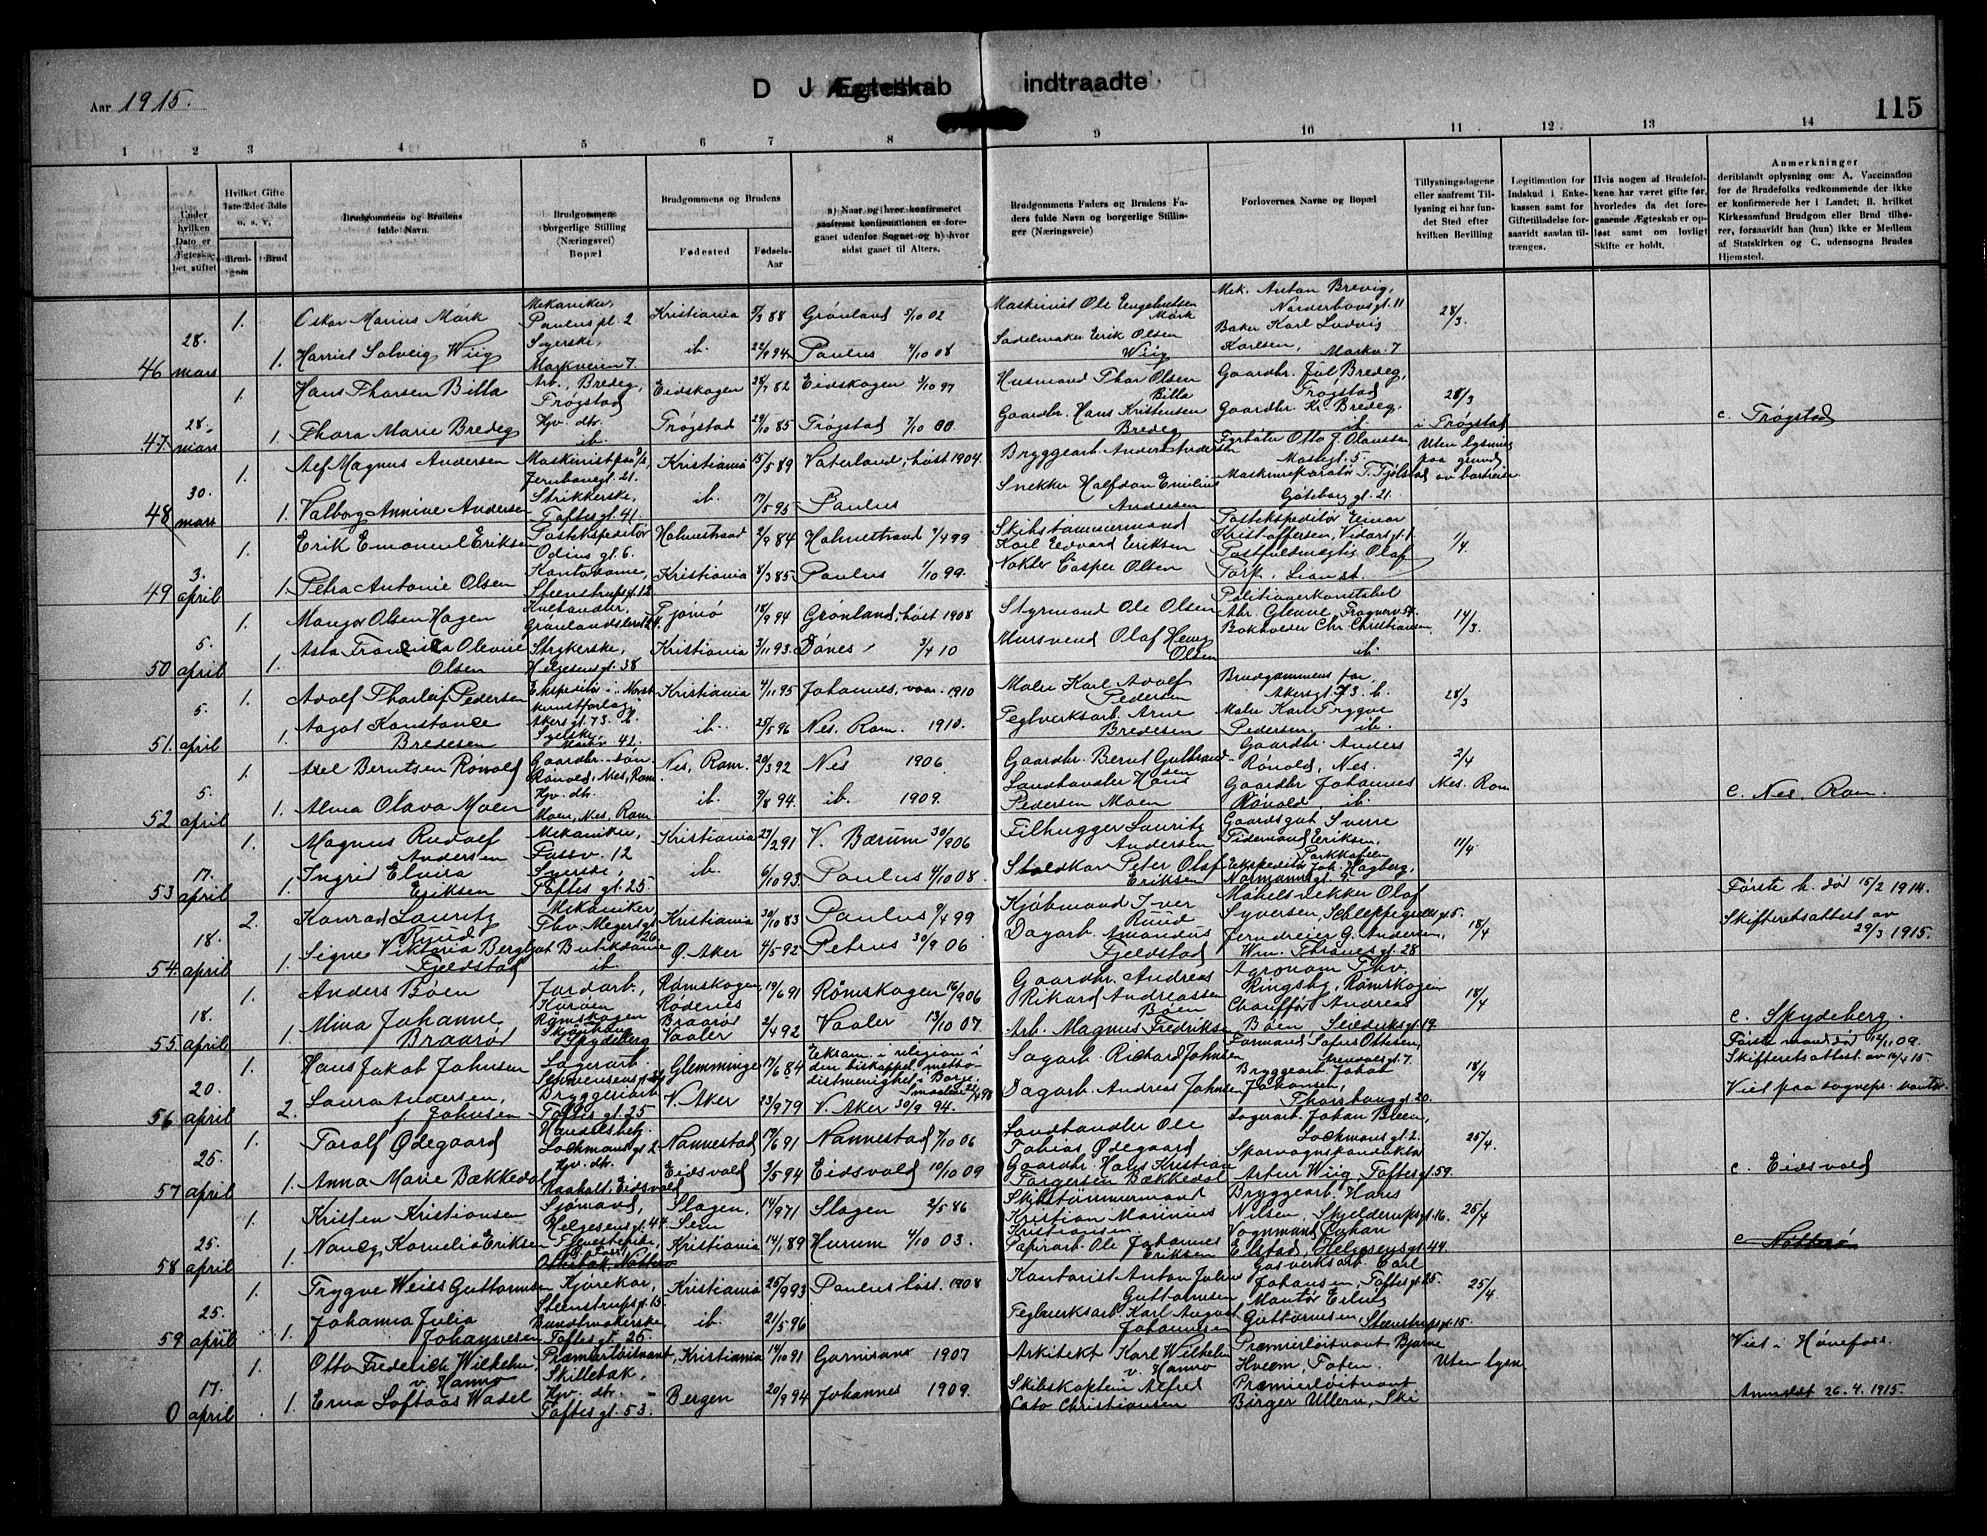 Aar 1915.
D J Ægteskab indtraadte
115
1 2 3 4 5 6 7 8 9 10 11 12 13 14
Under hvilken Dato er Ægteskabet stiftet
Hvilket Gifte 1ste 2det 3die o. s. v.
Brudgom
Brud
Brudgommens og Brudens fulde Navn.
Brudgommens borgerlige Stilling (Næringsvei) Bopæl
Brudgommens og Brudens
Fødested
Fødsels-Aar
a) Naar og hvor konfirmeret saafremt konfirmationen er foregaaet udenfor Sognet og b) hvor sidst gaaet til Alters.
Brudgommens Faders og Brudens Faders fulde Navn og borgerlige Stillinger (Næringsveie)
Forlovernes Navne og Bopæl
Tillysningsdagene eller saafremt Tillysning ei har fundet Sted efter hvilken Bevilling
Legitimation for Indskud i Enkekassen samt for Giftetilladelse forsaavidt saadan tiltrænges.
Hvis nogen af Brudefolkene har været gifte før, hvorledes da det foregaaende Ægteskab er opløst samt om lovligt Skifte er holdt.
Anmerkninger deriblandt oplysning om: A. Vaccination for de Brudefolks vedkommende der ikke er konfirmerede her i Landet; B. hvilket Kirkesamfund Brudgom eller Brud tilhører, forsaavidt han (hun) ikke er Medlem af Statskirken og C. udensogns Brudes Hjemsted.
46 28. mars 1. Oskar Marius Mørk Mekaniker, Paulus pl. 2 Kristiania 5/3 88 Grønland 5/10 02 Maskinist Ole Engebretsen Mørk Mek. Anton Brevig, Norderhovsgt. 11 28/3.
1. Harriet Solveig Wiig Syerske, Markveien 7. ib. 22/1 94 Paulus 4/10 08 Sadelmaker Erik Olsen Wiig Baker Karl Ludvig Karlsen, Markv. 7
47. 28. mars 1. Hans Thorsen Billa Arb., Bredeg, Trøgstad Eidskogen 28/7 82 Eidskogen 3/10 97 Husmand Thor Olsen Billa Gaardbr. Jul Bredeg, Trøgstad 28/3
1. Thora Marie Bredeg Hjv. dtr. ib. Trøgstad 29/10 85 Trøgstad 7/10 00 Gaardbr. Hans Kristensen Bredeg Gaardbr Kr. Bredeg. ib i Trøgstad c. Trøgstad
48 30. mars 1. Alf Magnus Andersen Maskinist paa D/S, Jernbanegt. 21. Kristiania 15/5 89 Vaterland, høst 1904. Bryggearb. Anders Andersen Fyrbøter Otto J. Olaussen Mossegt. 5. Uten lysning paa grund av bortreise
1. Valborg Annine Andersen Strikkerske, Toftes gt. 41. ib. 17/5 95 Paulus Snekker Halfdan Emilius Andersen Maskinreparatør T. Tjølstad Gøteborg gt. 21.
49 3. april 1. Erik Emanuel Eriksen Postekspeditør Odins gt. 6. Holmestrand 2/9 84 Holmestrand 2/4 99 Skibstømmermand Karl Edvard Eriksen Postekspeditør Einar Kristoffersen, Vidarsgt. 1/4.
1. Petra Antonie Olsen Kontordame, Steenstrupsgt. 12 Kristiania 8/3 85 Paulus 1/10 99. Vokter Casper Olsen Postfuldmægtig Olaf Torp, Lian st.
50 5. april 1. Mangor Olsen Hagen Kulhandler, Grønlandsleret 24. Tjømø 18/9 94 Grønland, høst 1908 Styrmand Ole Olsen Politioverkonstabel Abr. Glenne, Frognerv. 54. 14/3.
1. Asta Francisca Olevine Olsen Strykerske, Helgesensgt. 38 Kristiania 3/11 93. Dønes 3/4 10 Mursvend Olaf Henry Olsen Bokholder Chr. Christiansen, ib.
51. 5. april 1. Adolf Thorleif Pedersen Ekspeditør i Norsk kunstforlag, Akersgt. 73. b. Kristiania 4/11 95 Johannes, vaar. 1910 Maler Karl Adolf Pedersen Brudgommens far, Akersgt. 73. b. 28/3
1. Aagot Konstance Bredesen Syerske, Markv. 42, ib. 25/5 96 Nes. Rom. 1910. Teglverksarb. Arne Bredesen Maler Karl Trygve Pedersen ib.
52 5. april 1. Axel Berntsen Rønold Gaardbr. søn Rønold, Nes, Rom. Nes, Rom. 20/3 92 Nes 1906 Gaardbr. Bernt Gulbrandsen Gaardbr. Anders Rønold, Nes. 2/4
1. Alma Olava Moen Hjv. dtr. Moen, Nes, Rom ib. 9/8 94. ib. 1909. Landhandler Hans Pedersen Moen Gaardbr Johannes Rønold ib. Nes. Rom c. Nes, Rom.
53 17. april 1. Magnus Rudolf Andersen Mekaniker, Fossv. 12 Kristiania 23/2 91 V. Bærum 30/9 06 Filhugger Lauritz Andersen Gaardsgut Sverre Tidemand Eriksen, Parkkafeen 11/4.
1. Ingrid Elvira Eriksen Syerske, Toftes gt. 25. ib. 6/10 93. Paulus 4/10 08. Staldkar Peter Olaf Eriksen Ekspeditør Joh. Hagberg, Normannsgt. 5.
54. 18. april 2. Konrad Lauritz Ruud Mekaniker Thv. Meyersgt. 26. Kristiania 30/10 83 Paulus 9/4 99 Kjøbmand Iver Ruud Møbelsnekker Olaf Syversen, Schleppegrellsgt. 5. 18/4 Første h. død 15/2 1914. Skifteretsattest av 29/3 1915.
1. Signe Viktoria Bergljot Fjeldstad Butikdame ib. Ø. Aker 4/5 92 Petrus 30/9 06 Dagarb. Amandus Fjeldstad Jerndreier G. Andersen, Wm. Thranesgt. 28
55. 18. april 1. Anders Bøen Jordarb., Kuraas Rømskogen Rømskogen, Rødenes 19/6 91 Rømskogen 16/9 06 Gaardbr. Andreas Rikard Andreassen Bøen Agronom Thv. Ringsby, Rømskogen 18/4
1. Mina Johanne Braarød Spydeberg Braarød Vaaler 2/4 92 Vaaler 13/10 07. Arb. Magnus Fredriksen Chauffør Andreas Bøen, 19 c. Spydeberg.
56 20. april 1. Hans Jakob Johnsen Lagerarb. Glemminge 17/6 84 Eksam. i religion i den biskoppel. methodistmenighet i Borge, Sagarb. Richard Johnsen Formand Sofus Ottesen, 18/4 Første mand død 12/11 09. Skifteretsattest av 16/4 15.
2. Laura Andersen, f. Johnsen Bryggeriarb. Toftes gt. 25 V. Aker 23/9 79 V. Aker 30/9 94. Dagarb. Andreas Johnsen Bryggearb. Jakob Johansen, Thorshauggt. 20. Viet paa sognepr. kontor.
57 25. april 1. Toralf Ødegaard Handelsbetj. Lochmans gt. 2 Nannestad 17/6 91 Nannestad 7/10 06 Landhandler Ole Tobias Ødegaard Lagerarb. Johan Bleen, Lochmansgt. 2. 25/4.
1. Anna Marie Bækkedal Hjv. dtr. Raaholt, Eidsvold Eidsvold 3/5 94 Eidsvold 10/10 09 Gaardbr. Hans Kristian Torgersen Bækkedal Sporvognskonduktør Artur Wiig, Toftesgt. 59. c. Eidsvold
58 25. april 1. Kristen Kristiansen Sjømand, Helgesensgt. 44 Slagen, Sem 14/9 71 Slagen 2/5 86 Skibstømmermand Kristian Marinius Kristiansen Bryggearb. Hans Nilsen, Skjelderupsgt. 16. 25/4
1. Nancy Kornelia Eriksen Kristiania 14/1 89 Hurum 4/10 03. Papirarb. Ole Johannes Eriksen Vognmand Johan Elstad, Helgesensgt. 44. c. Nøtterø
59 25. april 1. Trygve Weiss Guttormsen Kjørekar, Steenstrupsgt. 15 Kristiania 25/9 93 Paulus høst. 1908 Kontorist Anton Julius Guttormsen Gasverksarb. Carl Johansen, Toftesgt. 25. 25/4.
1. Johanna Julia Johannesen Buntmakerske, Toftesgt. 25 ib. 21/5 96 Teglverksarb Karl August Johannesen Montør Erling Guttormsen Steenstrupsgt. 15.
0 17. april 1. Otto Frederich Wilhelm v. Hanno Premierløitnant, Skillebæk, Kristiania 14/10 91 Garnisons 1907 Arkitekt Karl Wilhelm v. Hanno Premierløitnant Bjarne Kveem, Toten. Uten lysn Viet i Hønefoss.
1. Erna Loftaas Wadel Hjv. dtr. Toftes gt. 53. Bergen 20/9 94 Johannes 1909. Skibskaptein Alfred Cato Christiansen Premierløitnant Birger Ullern, Ski Anmeldt 26.4.1915.